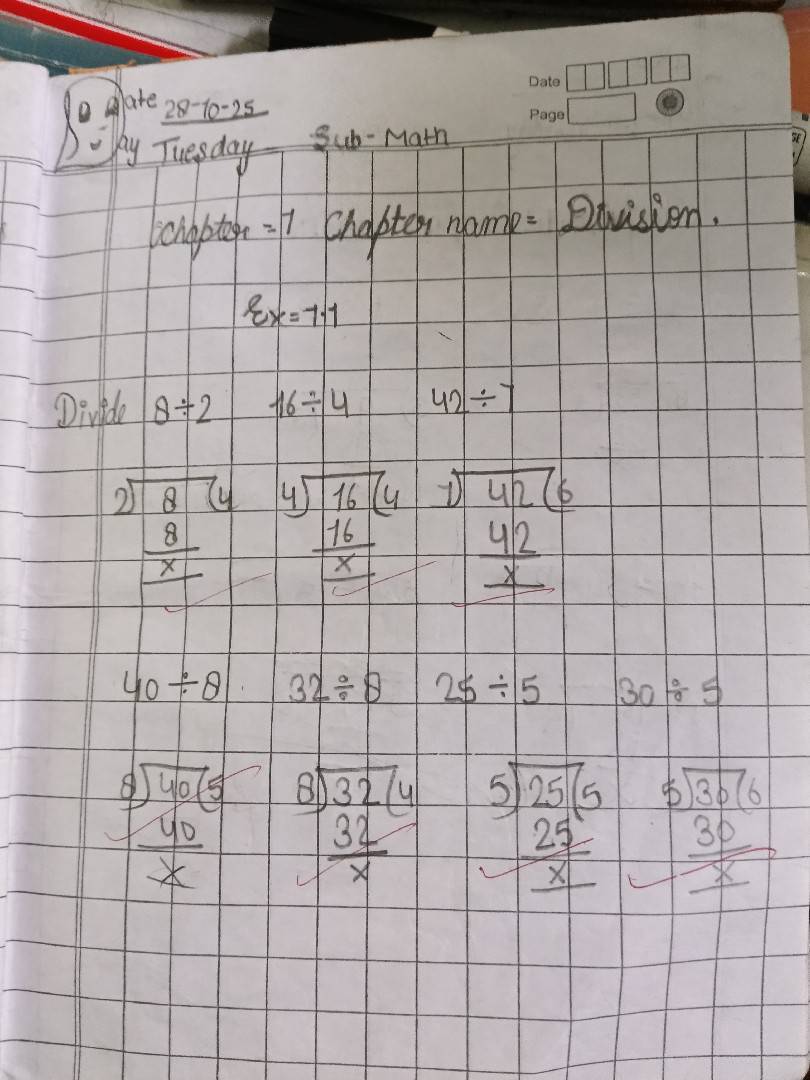 Date
Page
Date 28-10-25
Day Tuesday Sub - Math
Chapter = 7 Chapter name = Division.
Ex = 7.1
Divide 8÷2 16÷4 42÷7
2) 8 (4 4) 16 (4 7) 42 (6
8 16 42
x x x
40÷8 32÷8 25÷5 30÷5
8) 40 (5 8) 32 (4 5) 25 (5 5) 30 (6
40 32 25 30
x x x x